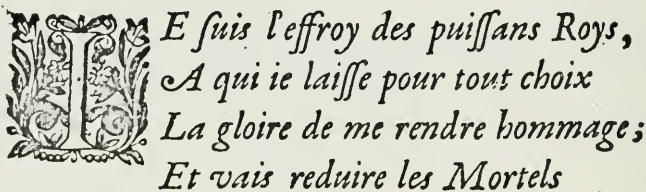 IE ſuis l'effroy des puiſſans Roys,
A qui ie laiſſe pour tout choix
La gloire de me rendre hommage;
Et vais reduire les Mortels